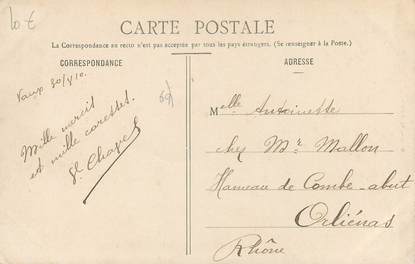 10 €
CARTE POSTALE
La Correspondance au recto n'est pas acceptée par tous les pays étrangers. (Se renseigner à la Poste.)
CORRESPONDANCE
Vaux 30/5/10.
Mille mercis
et mille caresses.
Chapes
ADRESSE
Melle Antoinette
chez Mr Mallon
Hameau de Combe-abut
Orliénas
Rhône